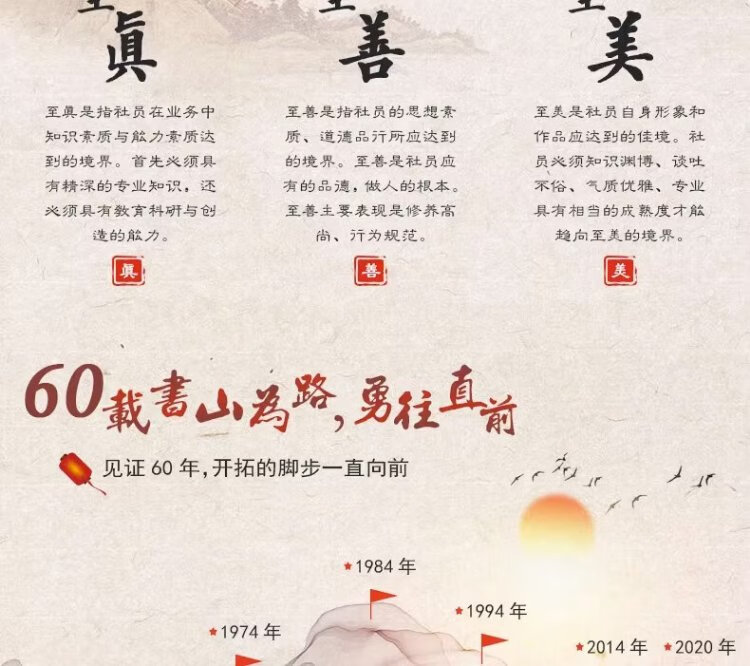 至眞
至善
至美
至眞是指社员在业务中
知识素质与能力素质达
到的境界。首先必须具
有精深的专业知识，还
必须具有教育科研与创
造的能力。
眞
至善是指社员的思想素
质、道德品行所应达到
的境界。至善是社员应
有的品德，做人的根本。
至善主要表现是修养高
尚、行为规范。
善
至美是社员自身形象和
作品应达到的佳境。社
员必须知识渊博、谈吐
不俗、气质优雅、专业
具有相当的成熟度才能
趋向至美的境界。
美
60載書山為路,勇往直前
见证 60 年,开拓的脚步一直向前
1984 年
1994 年
1974 年
2014 年
2020 年